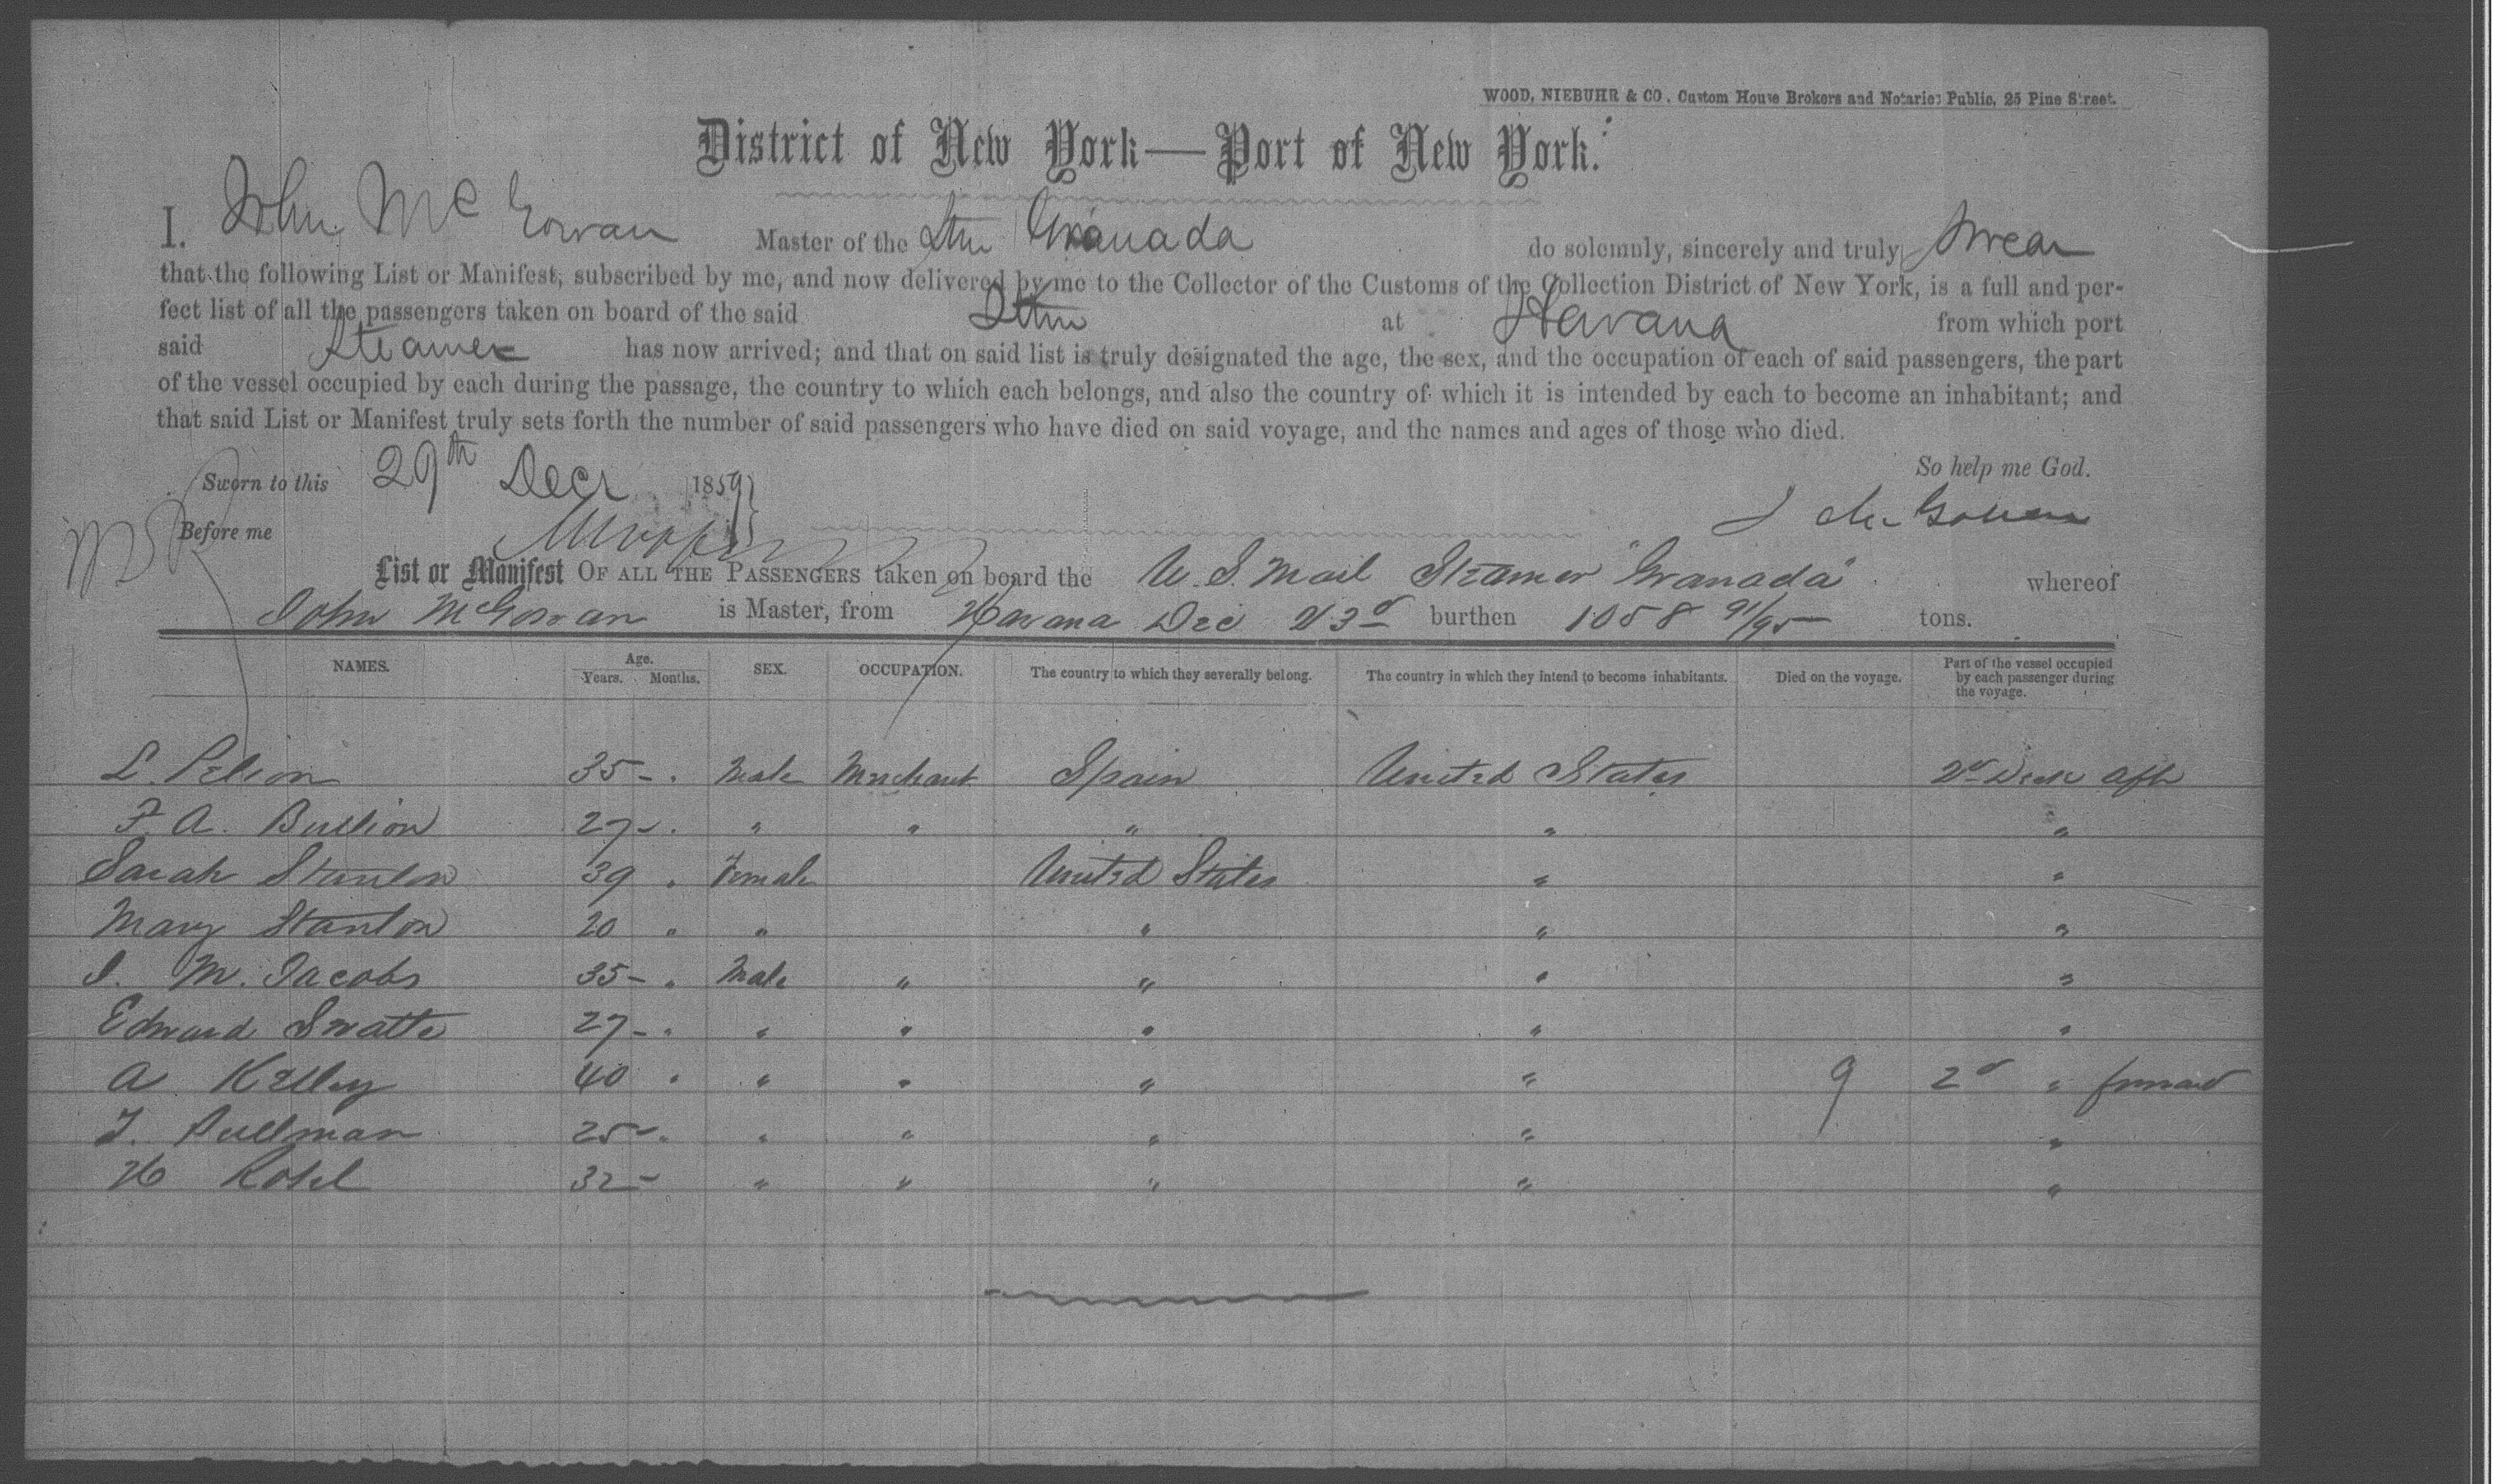 WOOD, NIEBUHR & CO., Custom House Brokers and Notaries Public, 25 Pine Street.
District of New York—Port of New York.
I. John McGowan Master of the Stm Granada do solemnly, sincerely and truly swear
that the following List or Manifest, subscribed by me, and now delivered by me to the Collector of the Customs of the Collection District of New York, is a full and per-
fect list of all the passengers taken on board of the said Stm at Havana from which port
said Steamer has now arrived; and that on said list is truly designated the age, the sex, and the occupation of each of said passengers, the part
of the vessel occupied by each during the passage, the country to which each belongs, and also the country of which it is intended by each to become an inhabitant; and
that said List or Manifest truly sets forth the number of said passengers who have died on said voyage, and the names and ages of those who died.
So help me God.
Sworn to this 29th Decr 1859
J McGowan
Before me
List or Manifest OF ALL THE PASSENGERS taken on board the U.S. Mail Steamer "Granada" whereof
John McGowan is Master, from Havana Dec 23d burthen 1058 91/95 tons.
NAMES. Age. Years. Months. SEX. OCCUPATION. The country to which they severally belong. The country in which they intend to become inhabitants. Died on the voyage. Part of the vessel occupied by each passenger during the voyage.
L. Pelion 35 - . Male Merchant Spain United States 2d Deck aft
F. A. Bullion 27 - . " " " " "
Sarah Stanton 39 . Female United States " "
Mary Stanton 20 " " " " "
I. M. Jacobs 35 - . Male " " " "
Edward 27 - . " " " " "
A Kelley 40 . " " " " 9 2d " forward
T. Pullman 25 - . " " " " "
H 32 - " " " " "